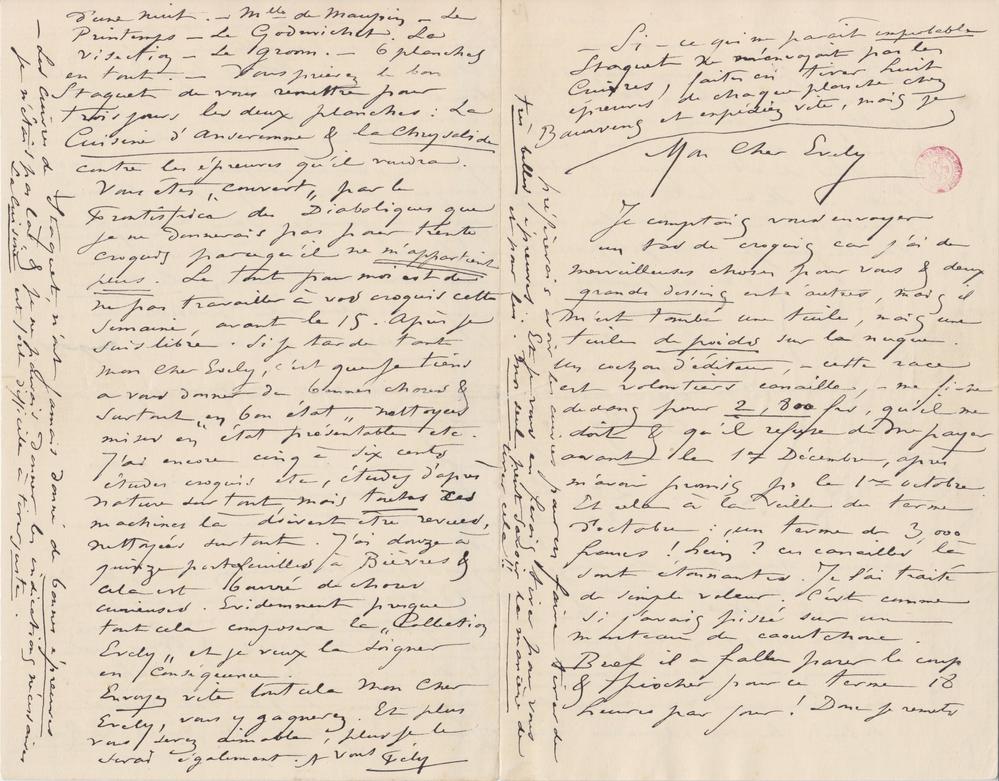 Mon Cher Evely
Je comptais vous envoyer
un tas de croquis car j'ai de
merveilleuses choses pour vous & deux
grands dessins entr'autres, mais il
m'est tombé une tuile, mais une
tuile de poids sur la nuque.
Un cochon d'éditeur, – cette race
est volontiers canaille, – me
dedans pour 2,800 frs, qu'il me
doit & qu'il refuse de me payer
avant le 1er Décembre, après
m'avoir promis pr le 1er octobre.
Et cela à la veille du terme
d'octobre : un terme de 3,000
francs ! hein ? ces canailles là
sont étonnantes. Je l'ai traité
de simple voleur. C'est comme
si j'avais pissé sur un
manteau de caoutchouc.
Bref il a fallu parer le coup
& piocher pour ce terme 18
heures par jour ! Donc je remets
d'une nuit. – Mlle de Maupin – Le
Printemps – Le Godmichet. La
visection – Le Groom. – 6 planches
en tout. – Vous prierez le bon
Staquet de vous remettre pour
trois jours les deux planches : La
Cuisine d'Anseremme & la Chrysalide
contre les épreuves qu'il voudra.
Vous êtes „couvert„ par le
Frontispice des Diaboliques que
je ne donnerais pas pour trente
croquis parcequ'il ne m'appartient
plus. Le tout pour moi est de
ne pas travailler à vos croquis cette
semaine, avant le 15. Après je
suis libre. Si je tarde tant
mon Cher Evely, c'est que je tiens
à vous donner de bonnes choses &
surtout „en bon état„ nettoyées
mises en „état présentable etc.
J'ai encore cinq à six cents
études croquis etc, études d'après
nature surtout, mais toutes ces
machines là doivent être revues,
nettoyées surtout. J'ai douze à
quinze portefeuilles à Bièvres &
cela est bourré de choses
curieuses. Evidemment presque
tout cela composera la „Collection
Evely„ et je veux la soigner
en conséquence.
Envoyez vite tout cela Mon Cher
Evely, vous y gagnerez. Et plus
vous serez aimable, plus je le
serai également. A vous Fély
– Les cuivres de Staquet, n'ont jamais donné de bonnes épreuves
je n'étais pas là & je ne pouvais donner les indications nécessaires
La Cuisine est très difficile à faire juste.
– Si – ce qui me parait improbable
Staquet ne m'envoyait pas les
Cuivres, faites en tirer huit
épreuves de chaque planche chez
Bouwens et expédiez vite, mais je
préférerais avoir les cuivres pour en faire tirer de
très belles épreuves. Et je vous en ferais tirer pour vous
et pour lui. Moi seul peut savoir la manière de
tirer cela !!